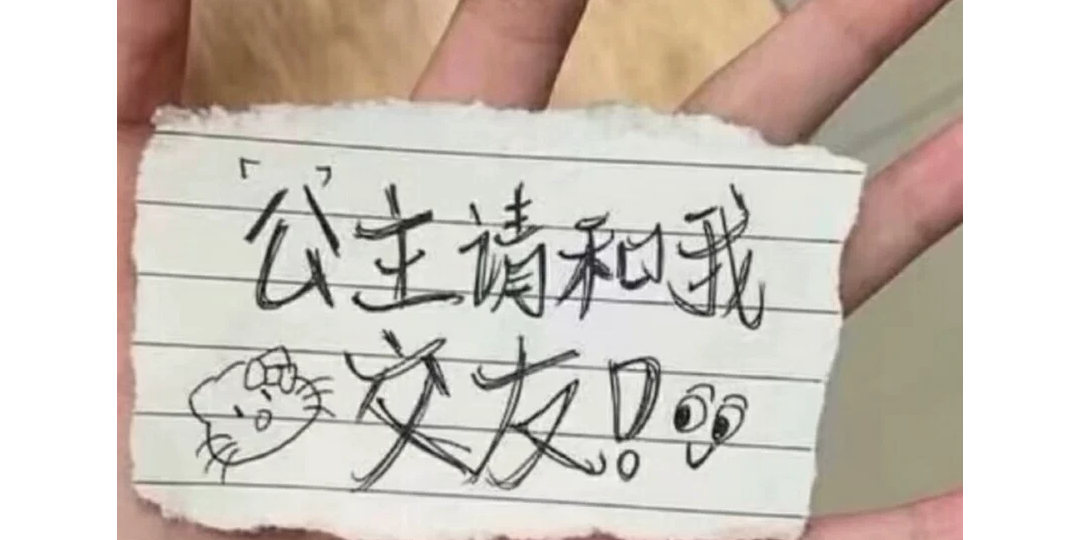 「公」主请和我
交友!